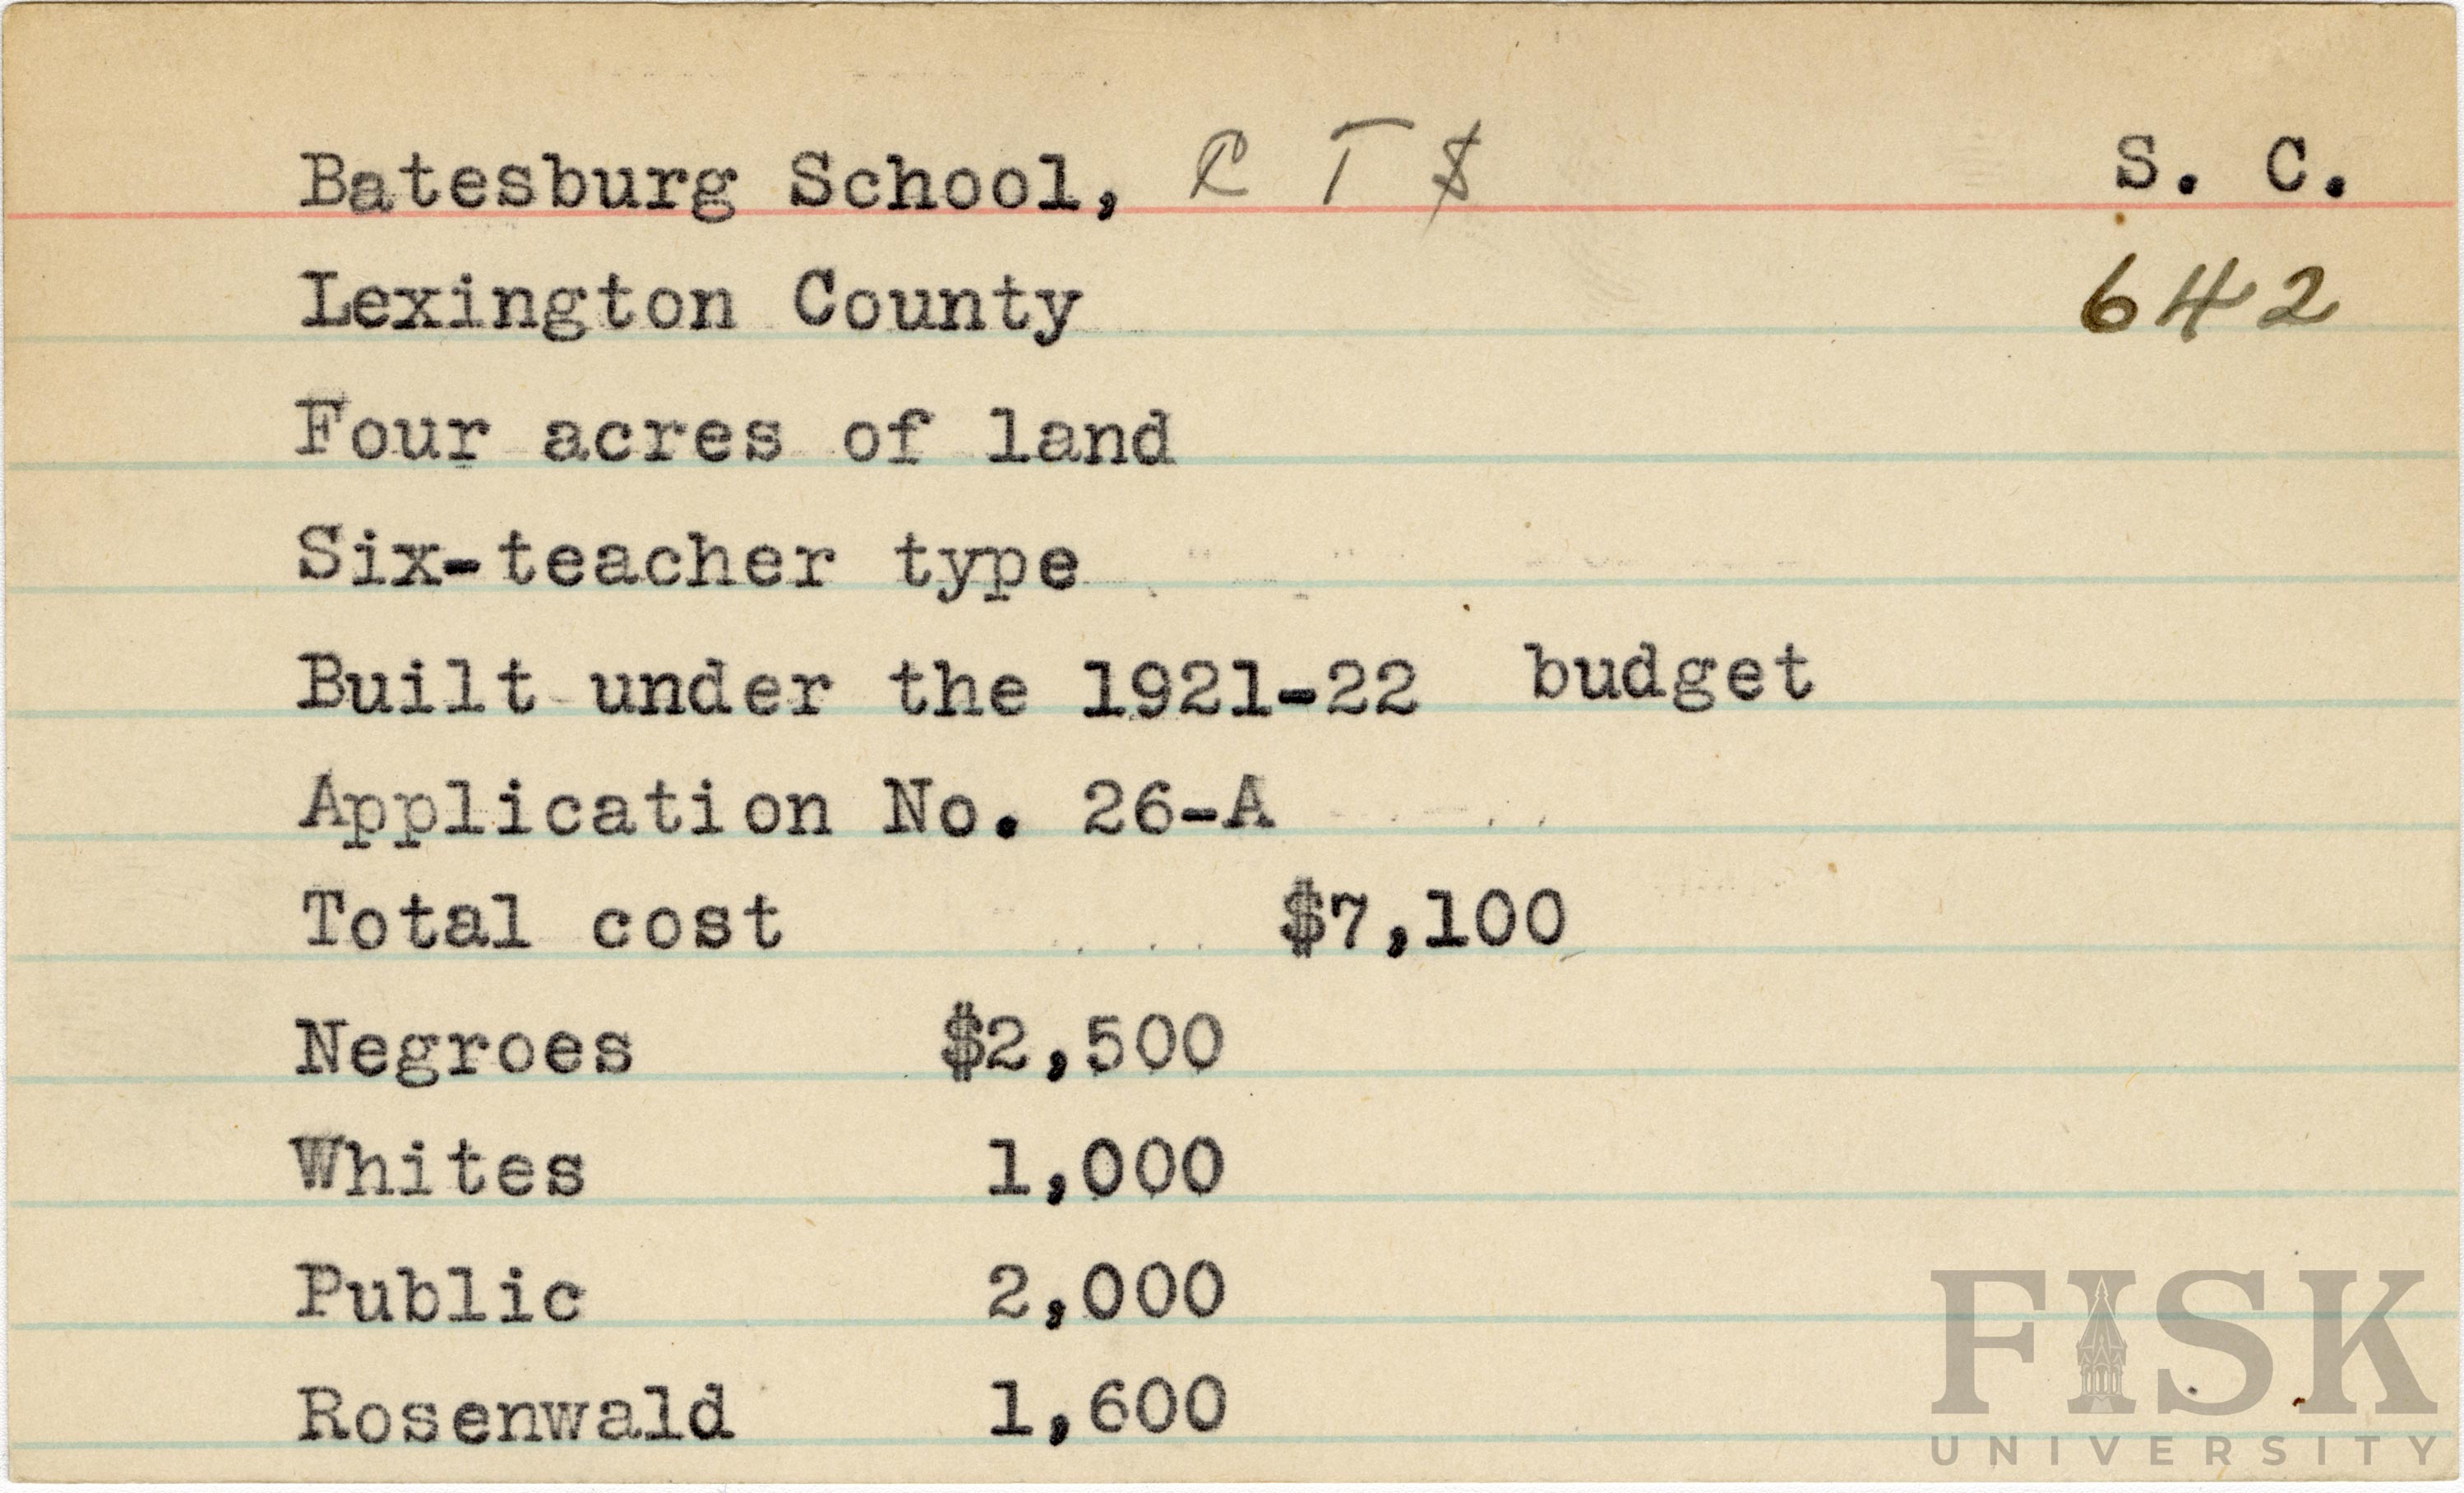 Batesburg School, C T $ S. C.
Lexington County 642
Four acres of land
Six-teacher type
Built under the 1921-22 budget
Application No. 26-A
Total cost $7,100
Negroes $2,500
Whites 1,000
Public 2,000
Rosenwald 1,600
FISK
UNIVERSITY